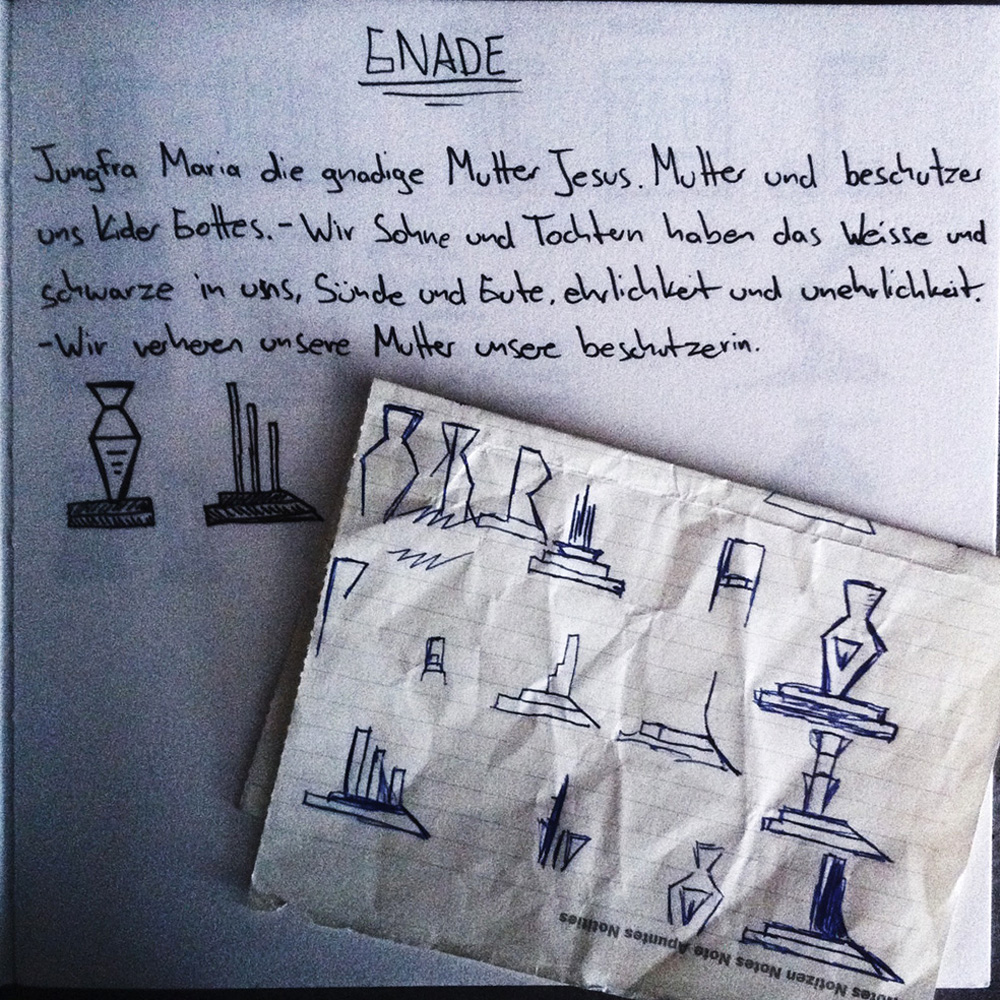 GNADE
Jungfra Maria die gnadige Mutter Jesus. Mutter und beschutzer
uns Kider Gottes.-Wir Sohne und Tochten haben das Weisse und
schwarze in uns, Sünde und Gute, ehrlichkeit und unehrlichkeit.
-Wir verheren unsere Mutter unsere beschutzerin.
otes Notizen Notes Note Apuntes Notities